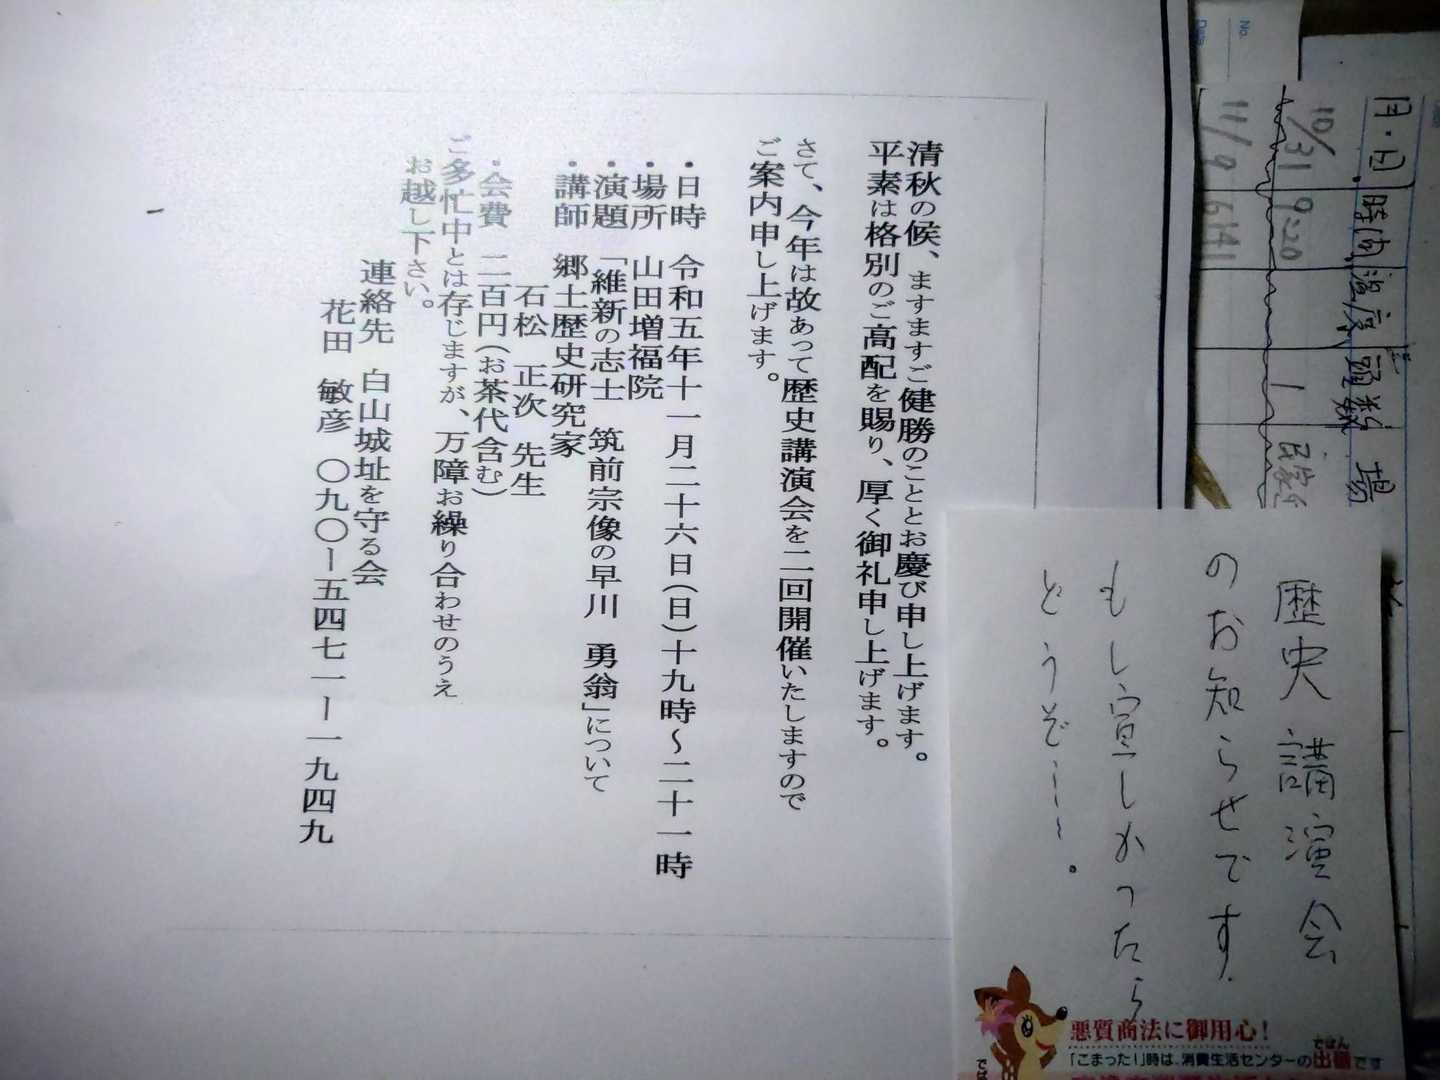 清秋の候、ますますご健勝のこととお慶び申し上げます。
平素は格別のご高配を賜り、厚く御礼申し上げます。
さて、今年は故あって歴史講演会を二回開催いたしますので
ご案内申し上げます。
・日時 令和五年十一月二十六日(日)十九時～二十一時
・場所 山田増福院
・演題 「維新の志士 筑前宗像の早川 勇翁」について
・講師 郷土歴史研究家
石松 正次 先生
・会費 二百円(お茶代含む)
ご多忙中とは存じますが、万障お繰り合わせのうえ
お越し下さい。
連絡先 白山城址を守る会
花田 敏彦 〇九〇ー五四七一ー一九四九
歴史講演会
のお知らせです.
もし宜しかったら
どうぞ…。
悪質商法に御用心!
「こまった!」時は、消費生活センターの出番です
でばん
No.
Date
月・日 時間 頭数 場
10/31 9:20 1
11/9